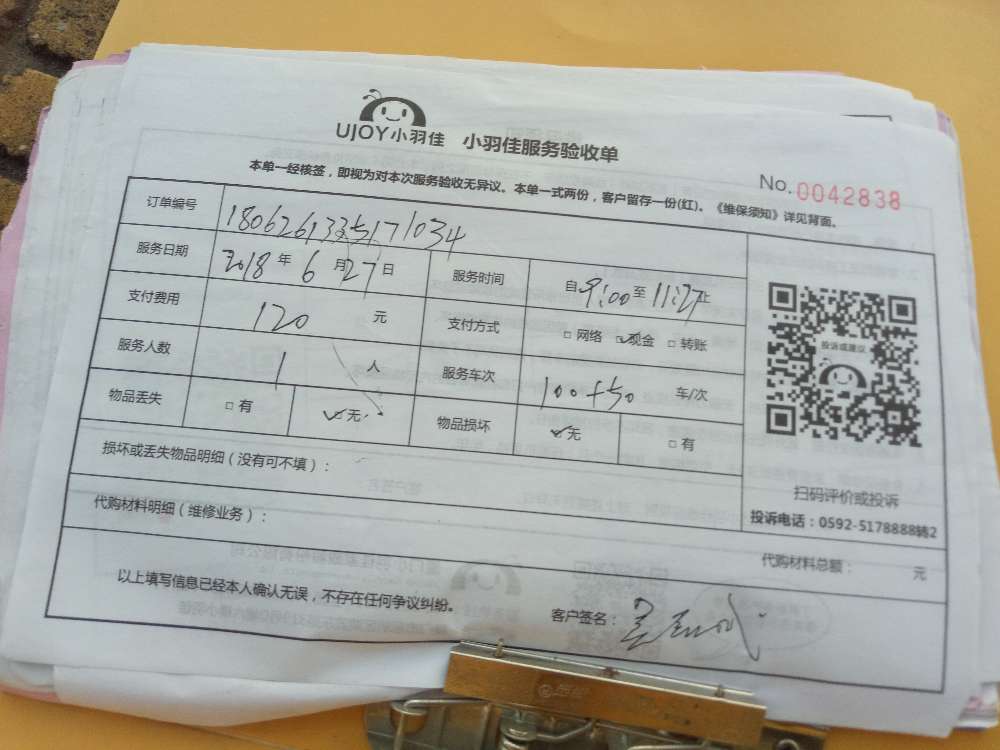 UJOY小羽佳 小羽佳服务验收单
本单一经核签，即视为对本次服务验收无异议。本单一式两份，客户留存一份(红)。《维保须知》详见背面。
No. 0042838
订单编号
服务日期 2018 年 6 月 27 日 服务时间 自 9:00 至 11:27 止
支付费用 120 元 支付方式 □ 网络 ✓ 现金 □ 转账
服务人数 1 人 服务车次 100+50 车/次
物品丢失 □ 有 ✓ 无 物品损坏 ✓ 无 □ 有
损坏或丢失物品明细（没有可不填）：
代购材料明细（维修业务）：
代购材料总额： 元
以上填写信息已经本人确认无误，不存在任何争议纠纷。
客户签名：
投诉或建议
扫码评价或投诉
投诉电话：0592-5178888转2